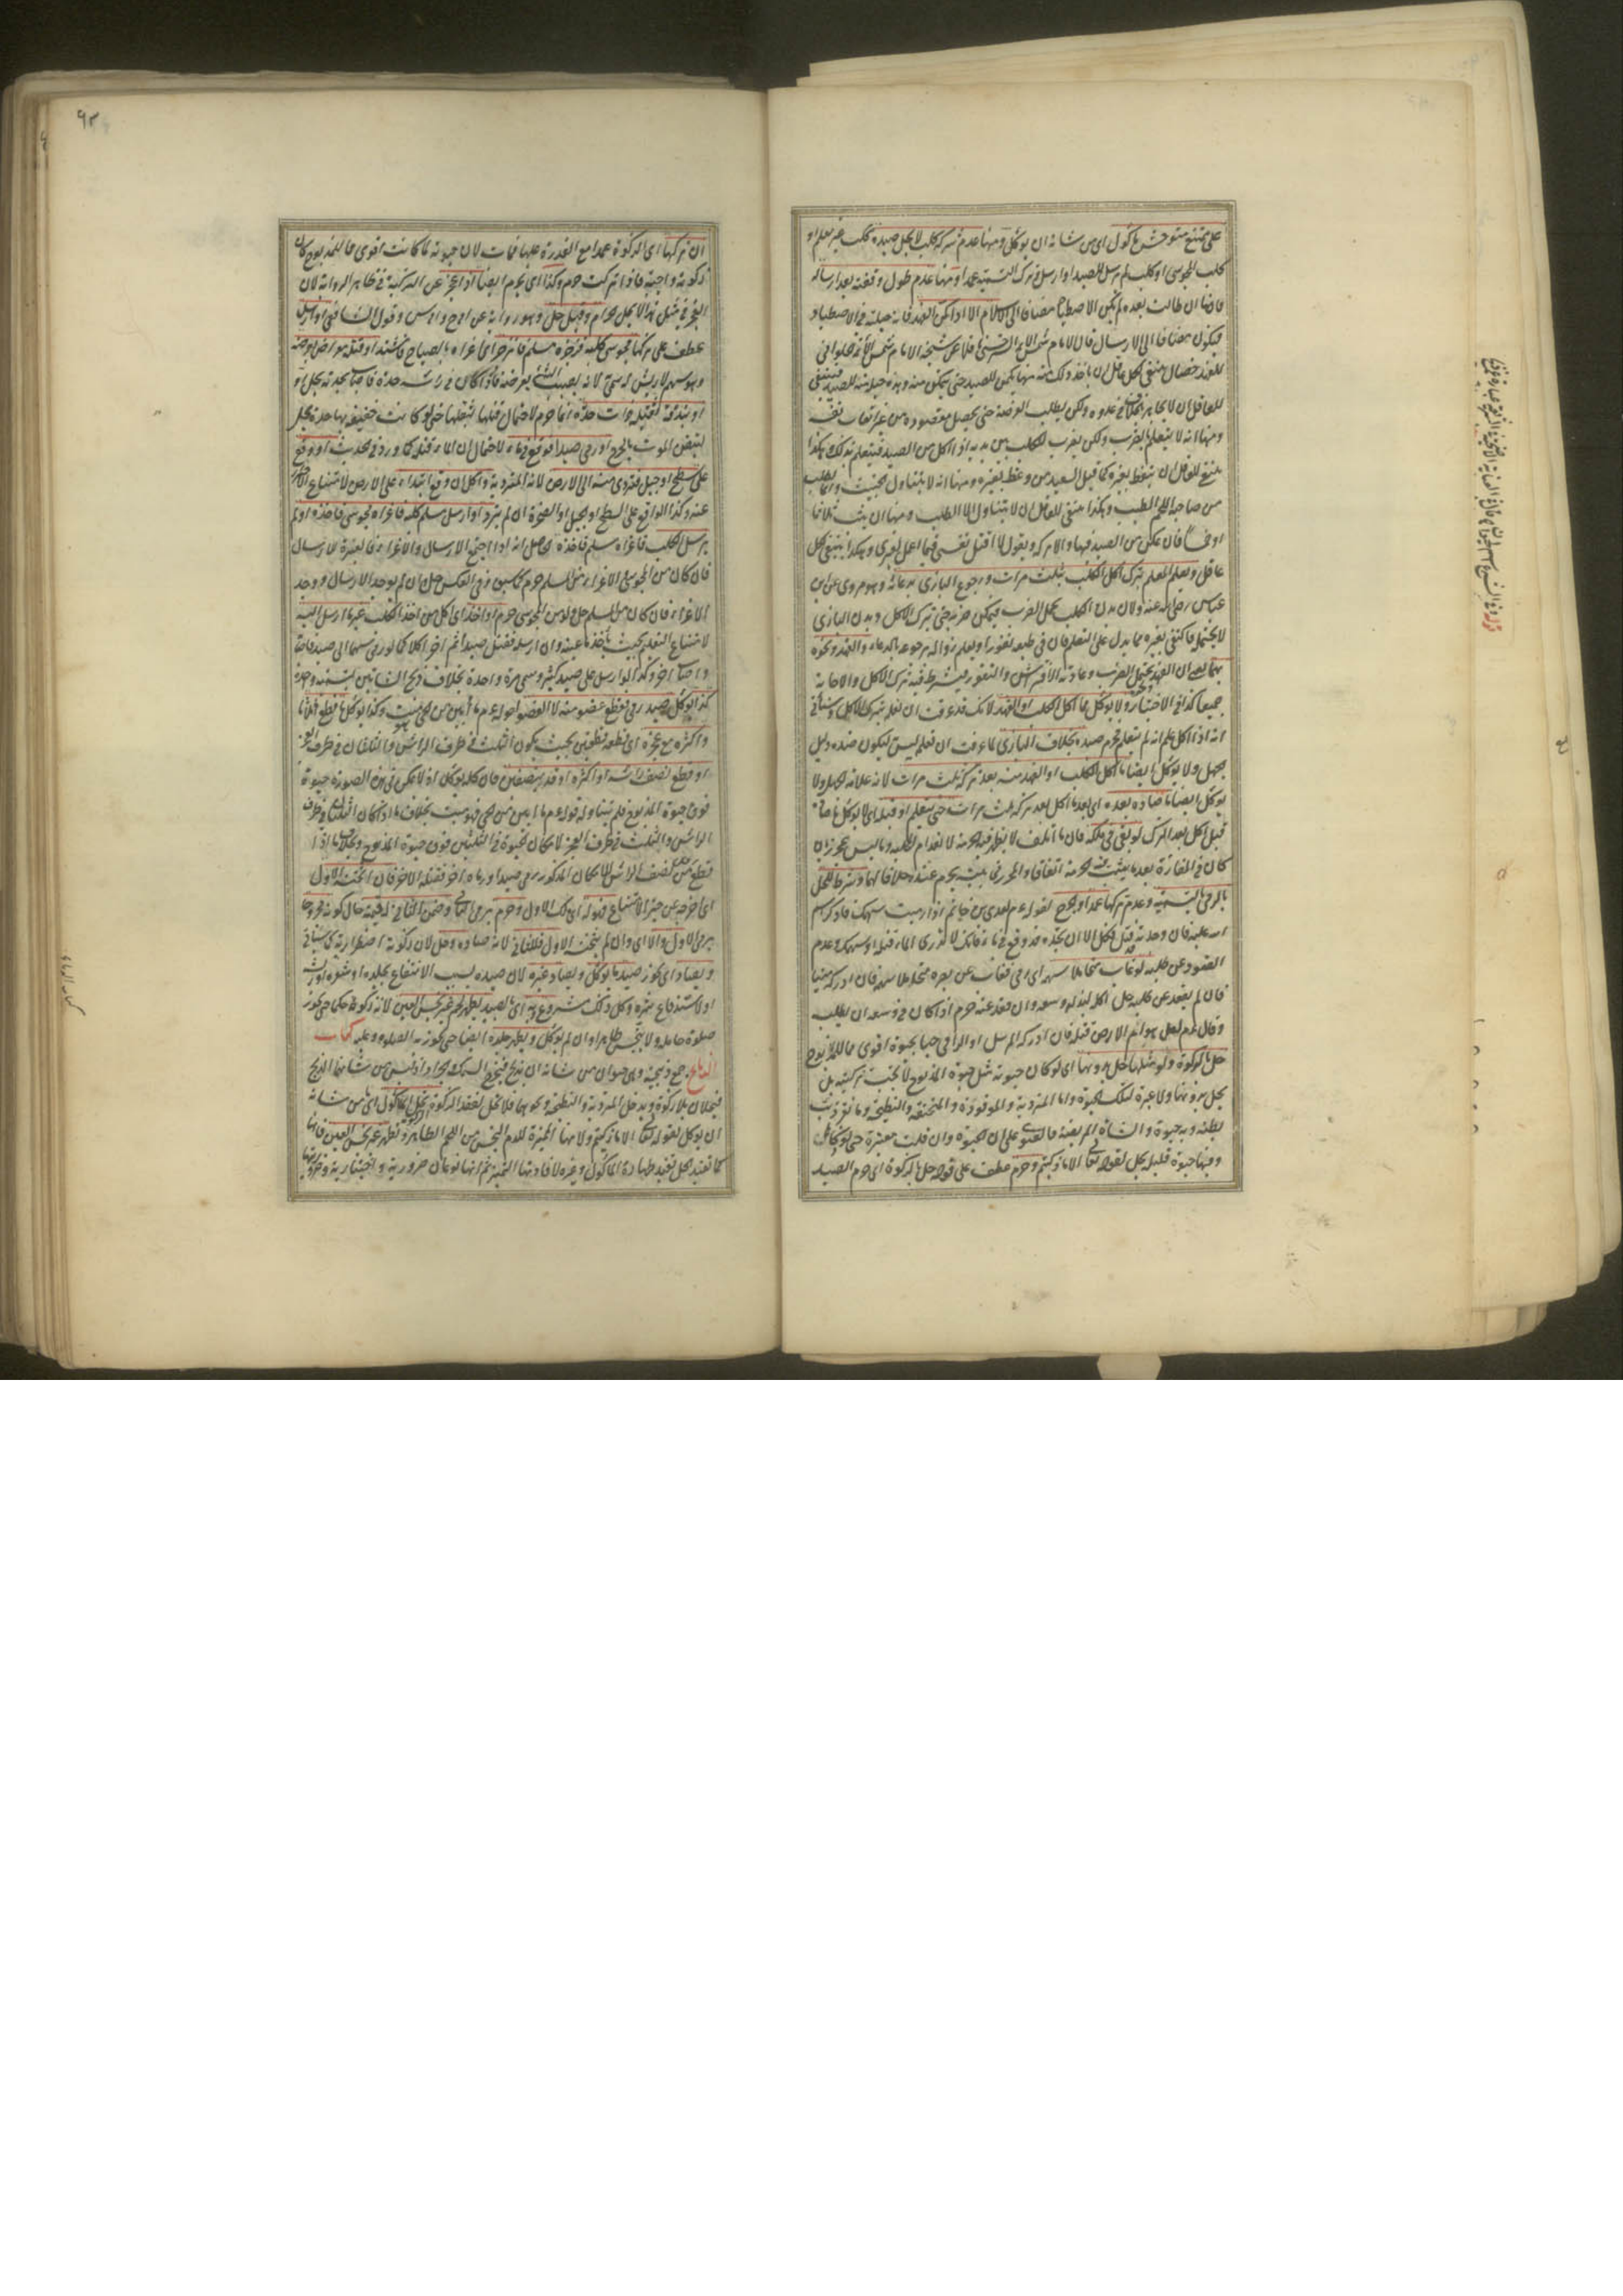 على ممتنع متوحش مأكول اى من شانه ان يوكل ومنها عدم شركة كلب لا يحل صيده ككلب غير معلم او
كلب المجوسى او كلب لم يرسل للصيد او ارسل وترك التسمية عمدا ومنها عدم طول وقفته بعد ارساله
فانها ان طالت بعده لم يكن الاصطياد مضافا الى الارسال الا اذا كمن الفهد فانه حيلة فى الاصطياد
فيكون مضافا الى الارسال قال الامام شمس الائمة السرخسى ناقلا عن شيخه الامام شمس الائمة الحلوانى
للفهد خصال ينبغى لكل عاقل ان ياخذ ذلك منه منها يكمن للصيد حتى يتمكن منه وهذه حيلة منه للصيد فينبغى
للعاقل ان لا يجاهر بالخلاف فى عدوه ولكن يطلب الفرصة حتى يحصل مقصوده من غير اتعاب نفسه
ومنها انه لا يتعلم بالضرب ولكن يضرب الكلب بين يديه اذا اكل من الصيد فيتعلم بذلك وهكذا
ينبغى للعاقل ان يتعظ بغيره كما قيل السعيد من وعظ بغيره ومنها انه لا يتناول الخبيث وانما يطلب
من صاحبه اللحم الطيب وهكذا ينبغى للعاقل ان لا يتناول الا الطيب ومنها ان يثب ثلاثا
او خمسا فان تمكن من الصيد فبها والا تركه ويقول لا اقتل نفسى فيما اعمل لغيرى وهكذا ينبغى لكل
عاقل ويعلم المعلم بترك اكل الكلب ثلث مرات ورجوع البازى بدعائه وهو مروى عن ابن
عباس رضى الله عنه ولان بدن الكلب يحتمل الضرب فيمكن ضربه حتى يترك الاكل وبدن البازى
لا يحتمله فاكتفى بغيره مما يدل على التعلم فان فى طبعه نفورا ويعلم زواله برجوعه بالدعاء والفهد ونحوه
بهما يعنى ان الفهد يحتمل الضرب وعادته الافتراس والنفور فيشترط فيه ترك الاكل والاجابة
جميعا كذا فى الاختيار ولا يوكل مما اكل الكلب او الفهد لانك قد عرفت ان تعلمه بترك الاكل وسيأتى
انه اذا اكل علم انه لم يتعلم فحرم صيده بخلاف البازى لما عرفت ان تعلمه ليس ليكون ضده دليل
الجهل ولا يوكل ايضا ما اكل الكلب او الفهد منه بعد تركه ثلث مرات لانه علامة الجهل ولا
يوكل ايضا ما صاده بعده اى بعد ما اكل بعد تركه ثلث مرات حتى يتعلم او قبله اى لا يوكل ما صاده
قبل اكل بعد الترك لو بقى فى ملكه فان ما اتلف لا يظهر فيه الحرمة لانعدام المحلية وما ليس بمحرز بان
كان فى المفازة بعد ما يثبت فيه الحرمة اتفاقا والمحرز فى بيته يحرم عنده خلافا لهما وشرط للحل
بالرمى التسمية وعدم تركها عمدا والجرح لقوله عم لعدى بن حاتم اذا رميت سهمك فاذكر اسم
الله عليه فان وجدته قد قتل فكل الا ان تجده قد وقع فى ماء فانك لا تدرى الماء قتله او سهمك وعدم
القعود عن طلبه لو غاب متحاملا سهمه اى رمى فغاب عن بصره متحاملا سهمه فان ادركه ميتا
فان لم يقعد عن طلبه حل اكله لبذله وسعه وان قعد عنه حرم اذا كان فى وسعه ان يطلبه
وقال عم لعل هوام الارض قتله فان ادركه المرسل او الرامى حيا بحيوة اقوى مما للمذبوح
حل بالذكوة ولو مثلها حل بدونها اى لو كان حيوته مثل حيوة المذبوح لا يجب تزكيته بل
يحل بدونها ولا عبرة لتلك الحيوة واما المتردية والموقوذة والمنخنقة والنطيحة وما بقر ذئب
بطنه وبه حيوة والشاة المريضة فالفتوى على ان الحيوة وان قلت معتبرة حتى لو ذكاها
وفيها حيوة قليلة يحل لقوله تعالى الا ما ذكيتم وحرم عطف على قوله حل بالذكوة اى حرم الصيد
ان تركها اى الذكوة عمدا مع القدرة عليها فمات لان حيوته لما كانت اقوى مما للمذبوح كان
ذكوته واجبة فاذا تركت حرم وكذا اى يحرم ايضا اذا عجز عن التزكية فى ظاهر الرواية لان
العجز فى مثل هذا لا يحل الحرام وقيل حل وهو رواية عن ابى ح وابى س وقول الشافعى او ارسل
عطف على تركها مجوسى كلبه فزجره مسلم فانزجر اى اغراه بالصياح فاشتد او قتله معراض بعرضه
وهو سهم لا ريش له سمى لانه يصيب الشئ بعرضه فاذا كان فى رأسه حدة فاصاب بحده يحل او
او بندقة ثقيلة ذات حدة انما حرم لاحتمال قتلها بثقلها حتى لو كانت خفيفة بها حدة يحل
لتيقن الموت بالجرح او رمى صيدا فوقع فى ماء لاحتمال ان الماء قتله كما ورد فى الحديث او وقع
على سطح او جبل فتردى منه الى الارض لانه المتردية واكل ان وقع ابتداء على الارض لامتناع الاحتراز
عنه وكذا الواقع على السطح او الجبل او الصخرة ان لم يترد او ارسل مسلم كلبه فاغراه مجوسى فاخذه او لم
يرسل الكلب فاغراه مسلم فاخذه الحاصل انه اذا اجتمع الارسال والاغراء فالعبرة للارسال
فان كان من المجوسى والاغراء من المسلم حرم كما سبق وفى العكس حل وان لم يوجد الارسال ووجد
الاغراء فان كان من المسلم حل ولو من المجوسى حرم او اخذ اى اكل من اخذ الكلب غير ما ارسل اليه
لامتناع التعليم بحيث يأخذ ما عينه وان ارسله فقتل صيدا ثم اخر اكلا كما لو رمى سهما الى صيد فاصابه
واصاب اخر وكذا لو ارسل على صيد كثير وسمى مرة واحدة بخلاف ذبح الشاتين بتسمية واحدة
كذا يوكل صيد رمى فقطع عضو منه لا العضو لقوله عم ما ابين من الحى فهو ميت وكذا يوكل ما قطع اثلاثا
واكثره مع عجزه اى قطعه قطعتين بحيث يكون الثلث فى طرف الراس والثلثان فى طرف العجز
او قطع نصف رأسه او اكثره او قد بنصفين فان كله يوكل اذ لا يمكن فى هذه الصورة حيوة
فوق حيوة المذبوح فلم يتناوله قوله عم ما ابين من الحى فهو ميت بخلاف ما اذا كان الثلثان فى طرف
الراس والثلث فى طرف العجز لامكان الحيوة فى الثلثين فوق حيوة المذبوح وبخلاف ما اذا
قطع اقل من نصف الراس للامكان المذكور رمى صيدا ورماه اخر فقتله الاخر فان اثخنه الاول
اى اخرجه عن حيز الامتناع فهو له اى ملك الاول وحرم برمى الثانى وضمن الثانى له قيمته حال كونه مجروحا
برمى الاول والا اى وان لم يثخنه الاول فللثانى لانه صاده وحل لان ذكوته اضطرارية كما سيأتى
ويصاد اى يجوز صيد ما يوكل ويصاد غيره لان صيده لسبب الانتفاع بجلده او شعره او ريشه
او لاستدفاع شره وكل ذلك مشروع وبه اى بالصيد يطهر لحم غير نجس العين لانه ذكوة حكما حتى يجوز
صلوة حامله ولا يتنجس طاهرا وان لم يوكل ويطهر جلده ايضا حتى يجوز به الصلوة وعليه كتاب
الذبائح جمع ذبيحة وهى حيوان من شانه ان يذبح فيخرج السمك والجراد اذ ليس من شانهما الذبح
فيحلان بلا ذكوة ويدخل المتردية والنطيحة ونحوهما فلا تحل لفقد الذكوة تحل المأكول اى من شانه
ان يوكل لقوله تعالى الا ما ذكيتم ولانها المميزة للدم النجس من اللحم الطاهر وتطهر غير نجس العين فانها
كما تفيد الحل تفيد طهارة المأكول وغيره لافادتها التمييز ثم انها نوعان ضرورية واختيارية وضرورتها